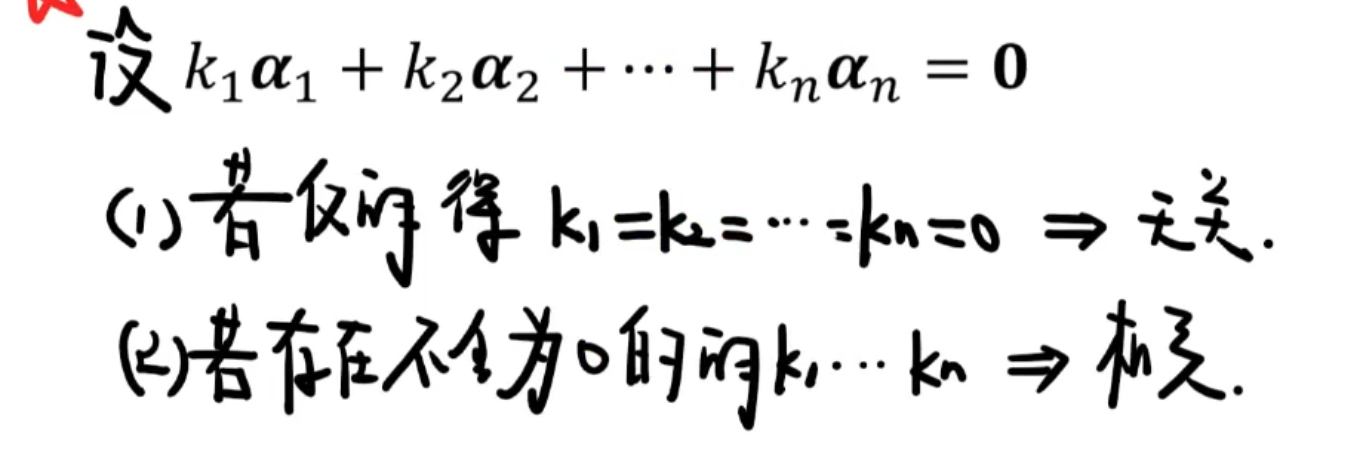 设 k₁α₁ + k₂α₂ + ⋯ + kₙαₙ = 0
(1) 若仅可得 k₁=k₂=⋯=kₙ=0 ⇒ 无关.
(2) 若存在不全为0的 k₁⋯kₙ ⇒ 相关.